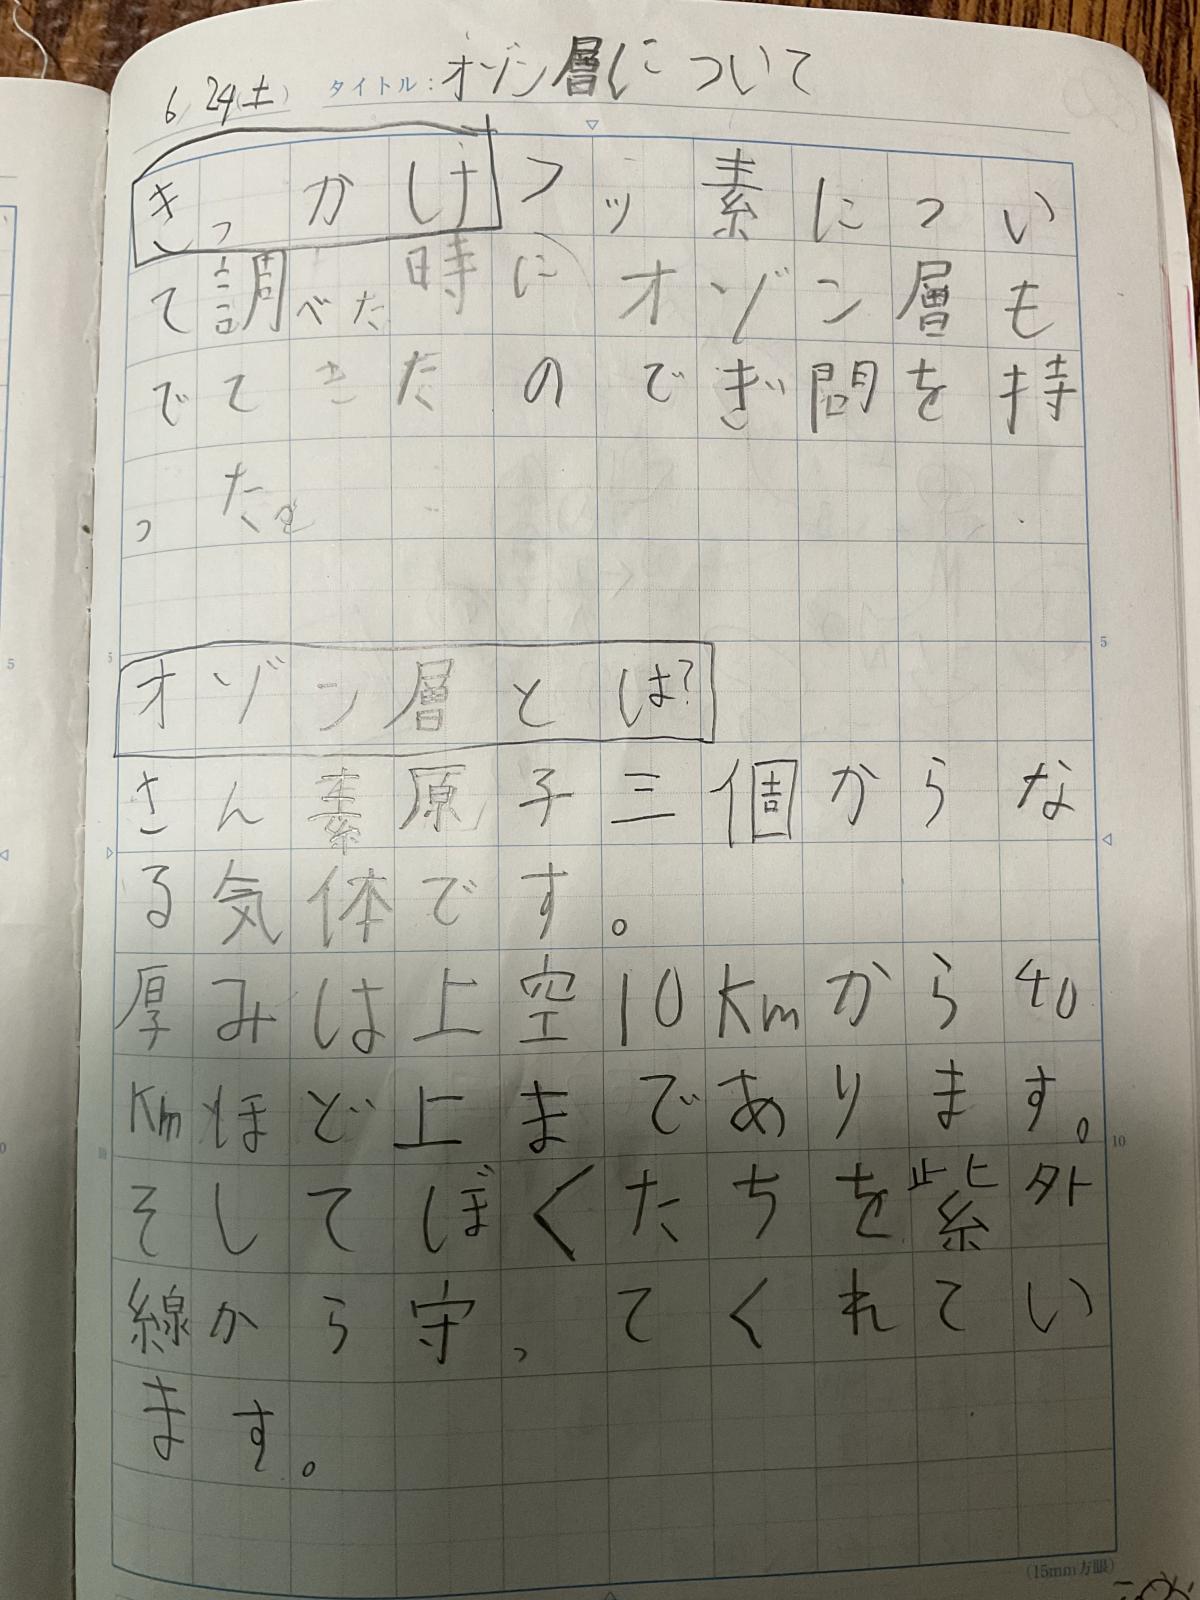 6/24(土) タイトル:オゾン層について
きっかけ フッ素につい
て調べた時にオゾン層も
でてきたのでぎ問を持
った。
オゾン層とは?
さん素原子三個からな
る気体です。
厚みは上空10Kmから40
Kmほど上まであります。
そしてぼくたちを紫外
線から守ってくれてい
ます。
5
5
10
10
5
(15mm方眼)